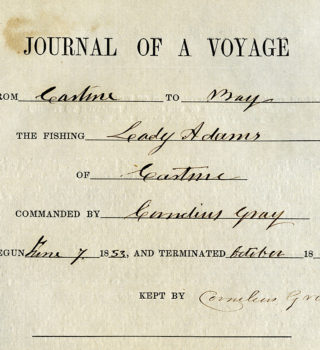 JOURNAL OF A VOYAGE
FROM Castine TO Bay
THE FISHING Lady Adams
OF Castine
COMMANDED BY Cornelius Gray
BEGUN June 7 1853, AND TERMINATED October 18
KEPT BY Cornelius Gra